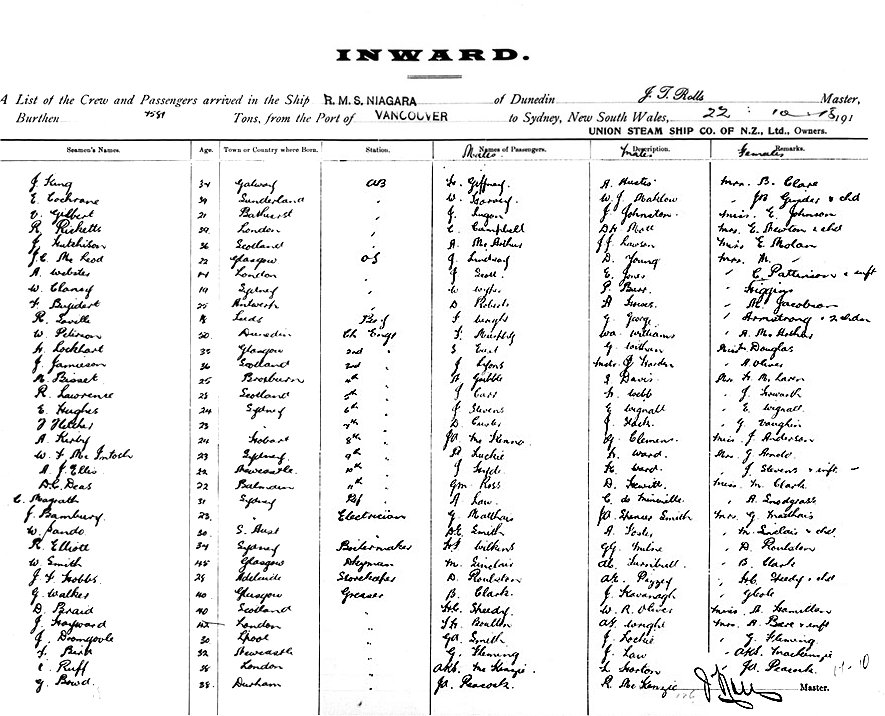 INWARD.
A List of the Crew and Passengers arrived in the Ship R.M.S. NIAGARA of Dunedin J. T. Rolls Master,
Burthen 7581 Tons, from the Port of VANCOUVER to Sydney, New South Wales, 22 : 10 191
UNION STEAM SHIP CO. OF N.Z., Ltd., Owners.
Seamen's Names. Age. Town or Country where Born. Station. Names of Passengers. Description. Remarks.
Males Males Females
J. King 34 Galway AB A. Hustis Mrs. B. Clare
E. Cochrane 39 Sunderland W. J. Mrs & chd
V. Gilbert 21 Bathurst J. Johnston Miss E. Johnson
R. Ricketts 39 London C. Campbell Mott Mrs. E. Newton & chd
J. Hutchison 36 Scotland A. Mc Arthur J. J. Lawson Miss E. Molan
J. C. Mc Leod 22 Glasgow OS G. Lindsay D. Young Mrs. M.
A. Webster London J. Scott E. Jones " C. Pattinson & inft
W. Clancy 19 Sydney W. P. Burr " Higgins
F. 25 Antwerp D. Roberts A. " M. Jacobson
R. Lavelle Leeds Boy F. Wright G. George " Armstrong & 2 chdn
W. 50 Dunedin Ch Engr F. Murphy Wm. Williams " A. Mc Arthur
H. Lockhart 35 Glasgow 2nd " S. East G. Witham Miss Douglas
J. Jamieson 36 Scotland 2nd " J. Lyons Mstr. J. Harden " A. Oliver
M. Bisset 25 Broxburn 4th " H. Gribble S. Davis Mrs. H. M. Laren
R. Lawrence 25 Scotland 5th " J. Carr H. Webb " J. Howarth
E. Hughes 24 Sydney 6th " J. Stevens E. Wignall " E. Wignall
J. Fletcher 23 " 7th " D. J. Hack " G. Vaughin
A. Kirby 24 Hobart 8th " Jas Mc Kenna G. Clemens Miss J. Anderson
W. F. Mc Intosh 23 Sydney 9th " R. Luckie H. Ward Mrs. G. Arnold
A. J. Ellis 22 Newcastle 10th " J. H. Ward " J. Stevens & inft
D. C. Deas 22 Balmain 11th " Gm. Ross D. Hewitt Miss M. Clark
C. Magrath 31 Sydney A. Law C. de Minville " A. Snodgrass
J. Bambury 23 " Electrician G. Matthais Jas Spencer Smith Mrs. G. Mathais
W. Pando 30 S. Aust D. E. Smith A. Foster " M. Sinclair & chd
R. Elliott 34 Sydney Boilermaker H. F. Wilkens G. G. Milne " D. Roulston
W. Smith 45 Glasgow Dkyman M. Sinclair Turnbull " B. Clark
J. F. Hobbs 25 Adelaide Storekeeper D. Roulston A. E. Pezzey " H. C. Sheedy & chd
G. Walker 40 Glasgow Greaser B. Clark J. Kavanagh " Glole
D. Braid 40 Scotland " H. C. Sheedy W. R. Oliver Miss A. Hamilton
J. Hayward 42 London " Boulton A. G. Wright Mrs. A. Bare & inft
J. Dromgoole 30 Lpool " Geo Smith J. Lockie " G. Fleming
F. Bird 32 Newcastle " G. Fleming J. Law " Mackenzie
E. Ruff 38 London " Mc Kenzie H. Horton " Jas. Peacock
G. Bowd 38 Durham " Jas. Peacock R. Mc Kenzie Master.